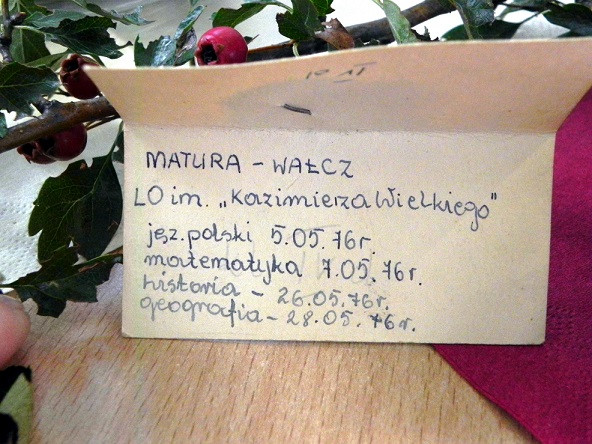 MATURA - WAŁCZ
LO im. „Kazimierza Wielkiego"
jęz. polski 5.05.76r.
matematyka 7.05.76r.
historia - 26.05.76r.
geografia - 28.05.76r.